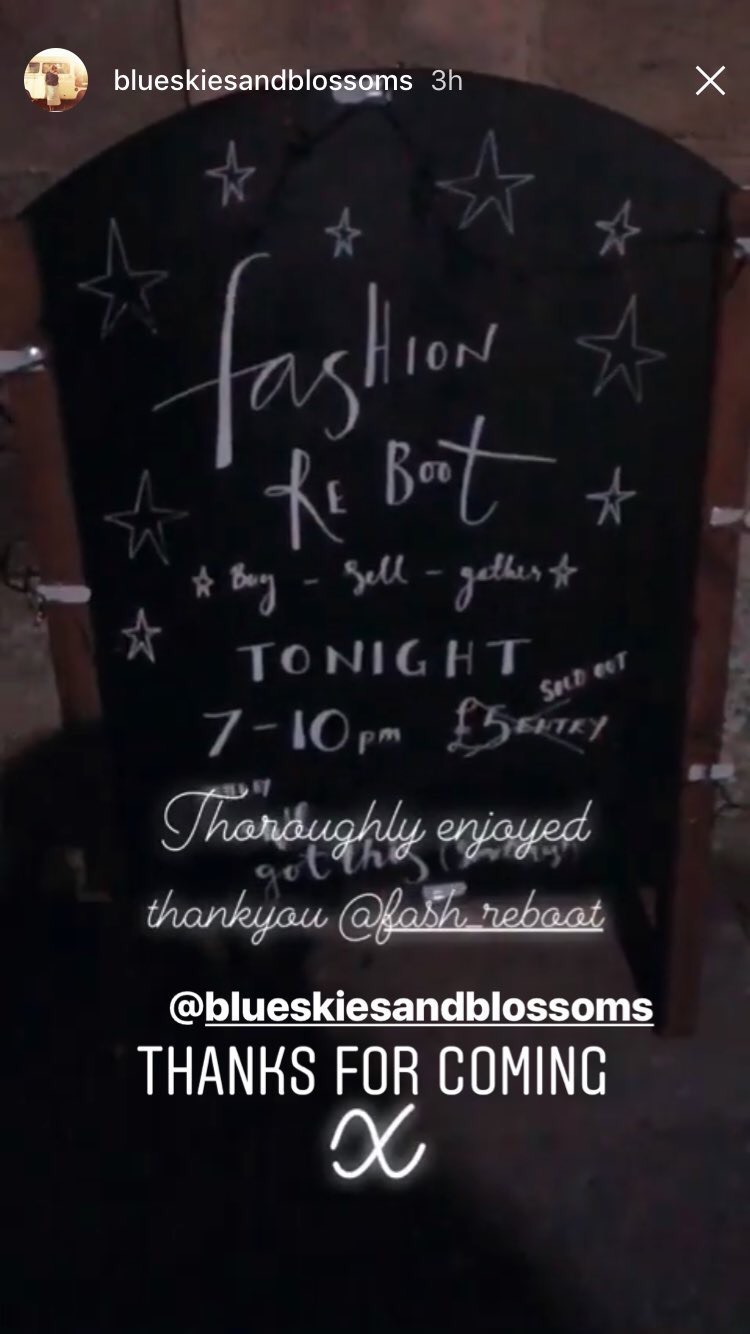 blueskiesandblossoms 3h
fasHION
RE BooT
Buy - Sell - gather
TONIGHT
SOLD OUT
7-10pm £5 ENTRY
Thoroughly enjoyed
got this
thankyou @fash_reboot
@blueskiesandblossoms
THANKS FOR COMING
X